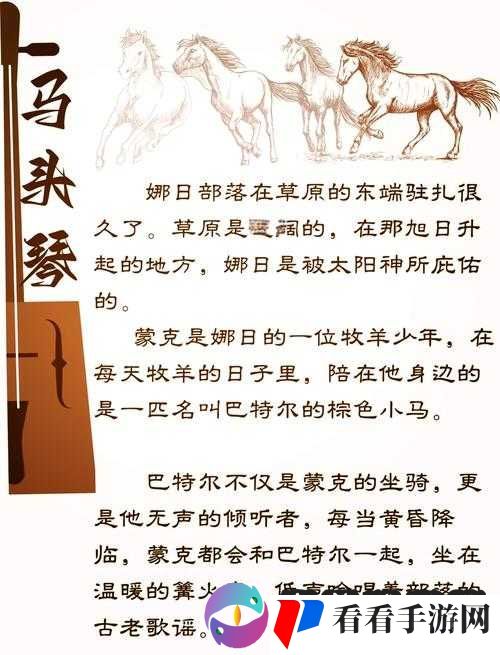 马头琴
娜日部落在草原的东端驻扎很
久了。草原是辽阔的，在那旭日升
起的地方，娜日是被太阳神所庇佑
的。
蒙克是娜日的一位牧羊少年，在
每天牧羊的日子里，陪在他身边的
是一匹名叫巴特尔的棕色小马。
巴特尔不仅是蒙克的坐骑，更
是他无声的倾听者，每当黄昏降
临，蒙克都会和巴特尔一起，坐在
温暖的篝火
古老歌谣。
看看手游网